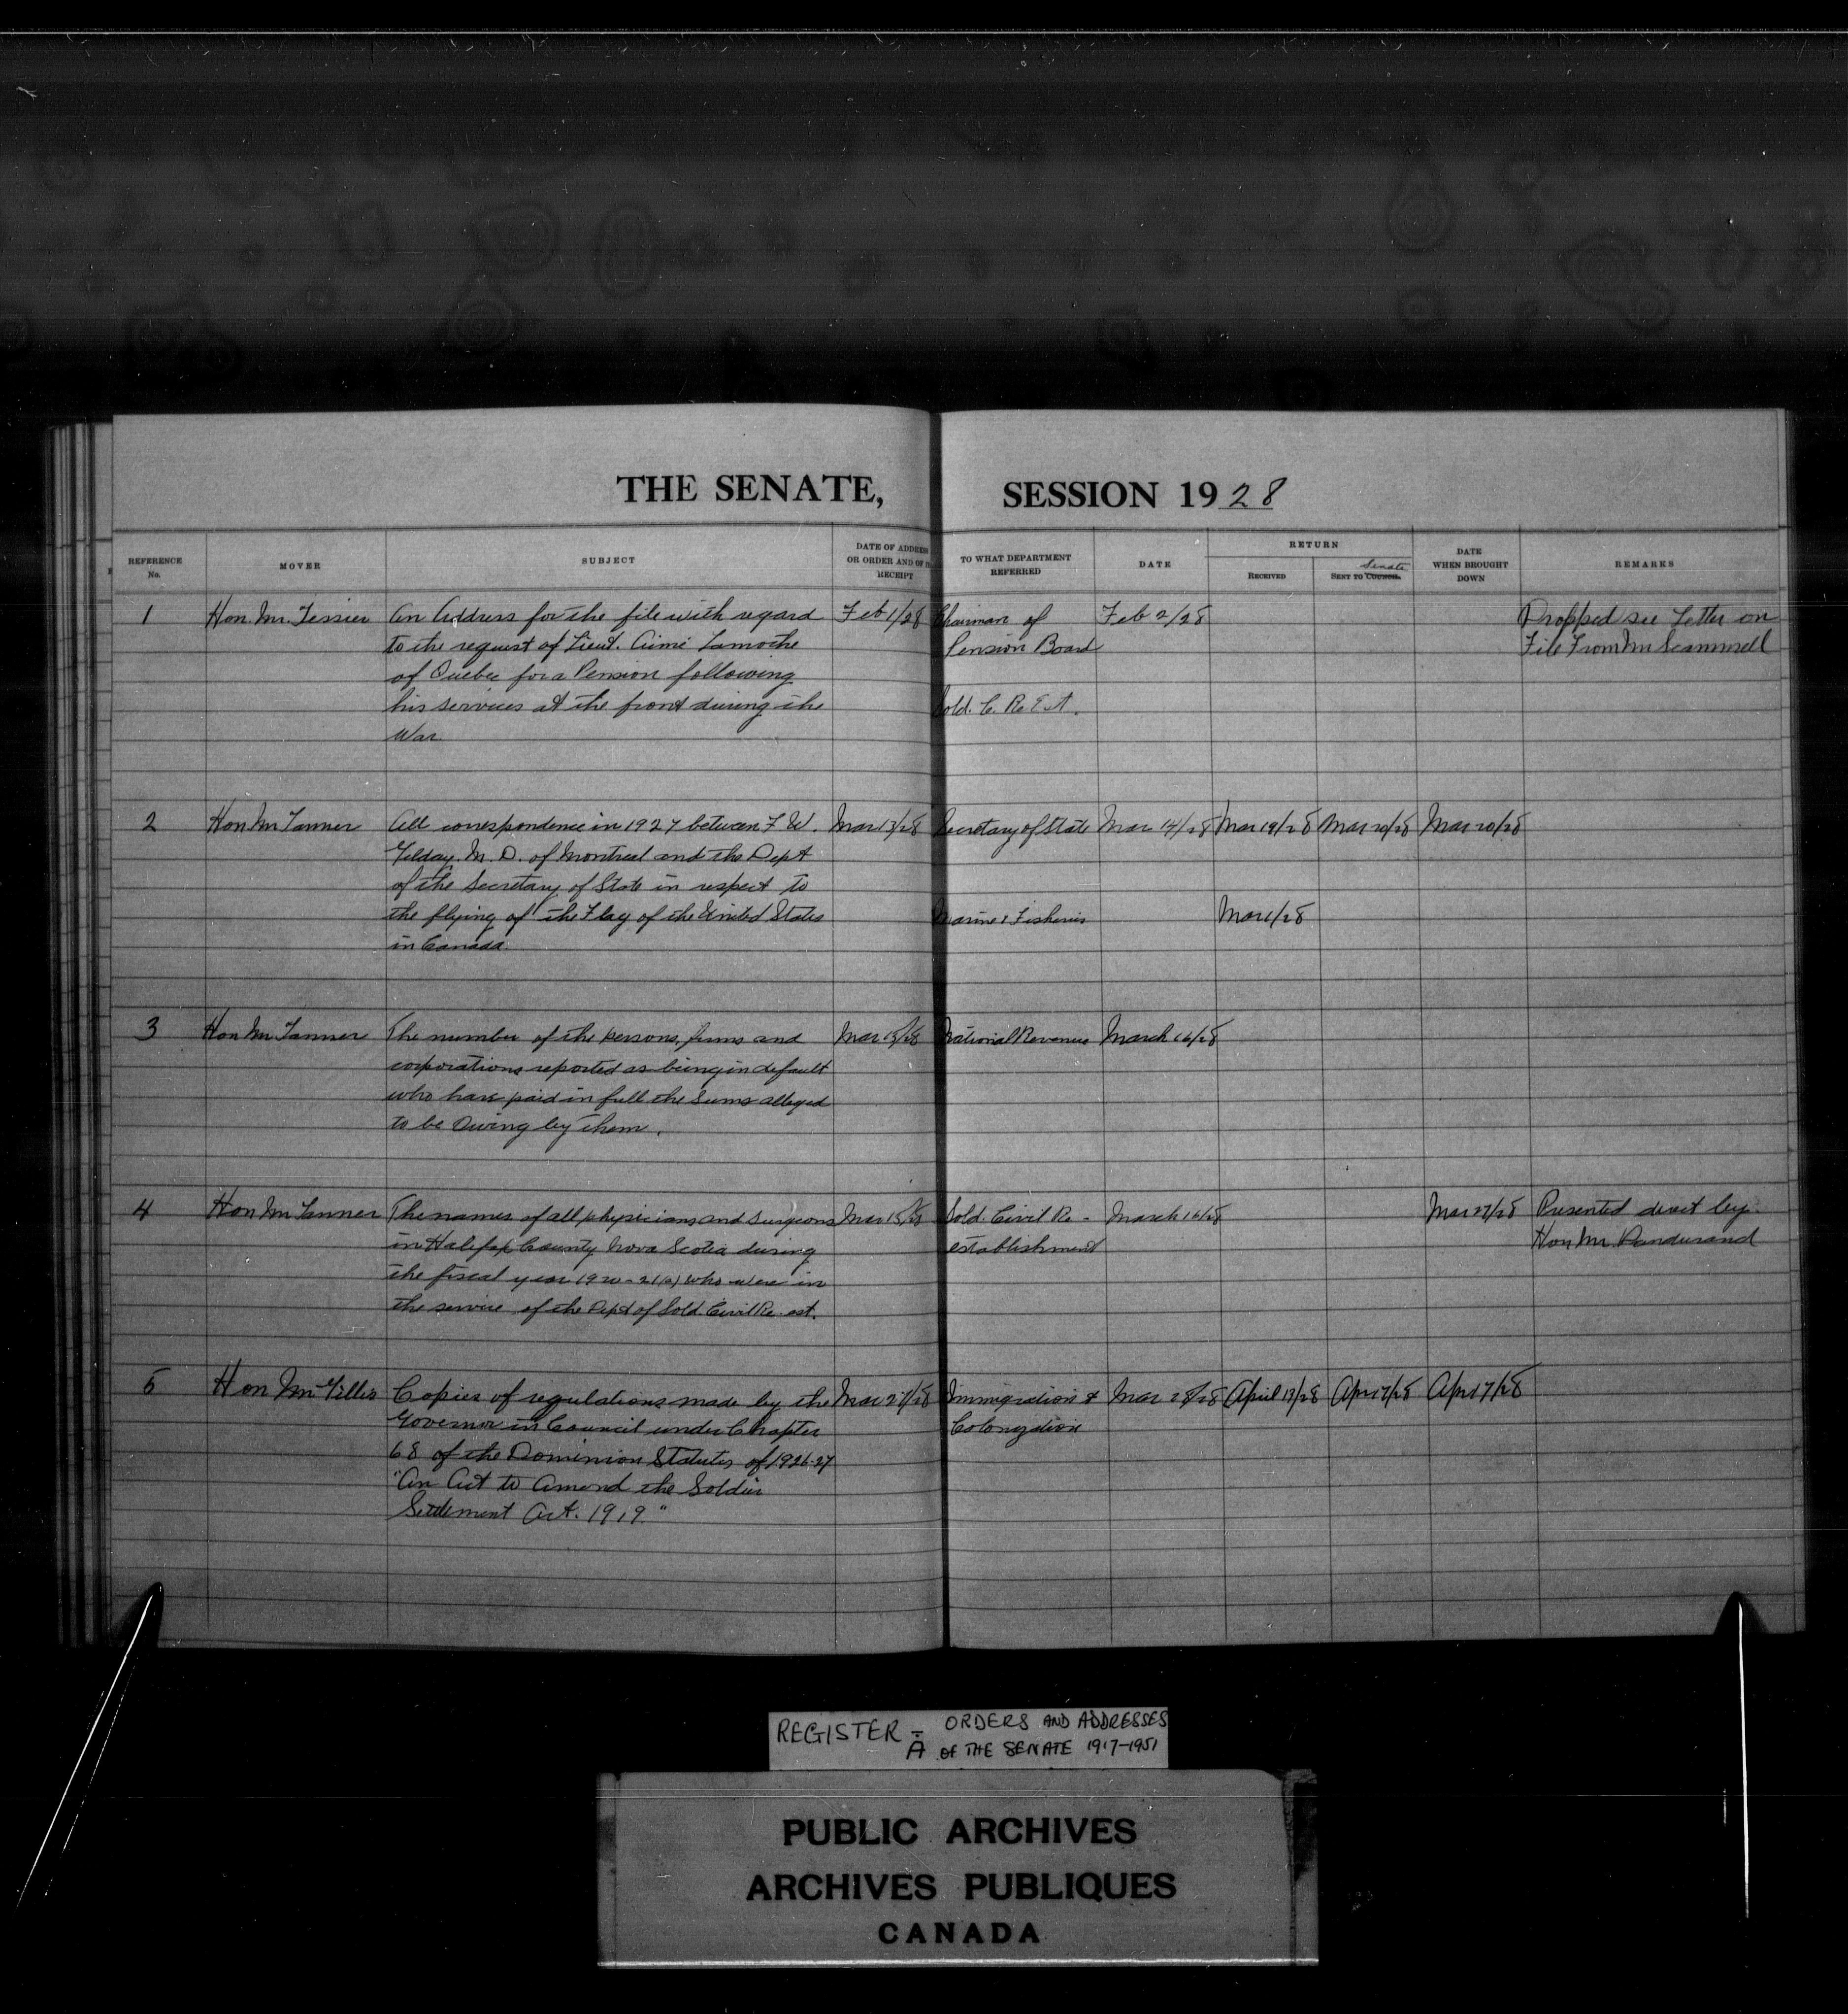 THE SENATE, SESSION 1928
REFERENCE No.
MOVER
SUBJECT
DATE OF ADDRESS OR ORDER AND OF RECEIPT
TO WHAT DEPARTMENT REFERRED
DATE
RETURN
RECEIVED
SENT TO COUNCIL Senate
DATE WHEN BROUGHT DOWN
REMARKS
1
Hon. Mr. Tessier
An Address for the file with regard
to the request of Lieut. Aimé Lamothe
of Quebec for a Pension following
his services at the front during the
War.
Feb 1/28
Chairman of
Pension Board
Sold. C. Re Est.
Feb 2/28
Dropped see Letter on
File From Mr Scammell
2
Hon Mr Tanner
All correspondence in 1927 between F W.
Gilday. M. D. of Montreal and the Dept
of the Secretary of State in respect to
the flying of the Flag of the United States
in Canada.
Mar 13/28
Secretary of State
Marine & Fisheries
Mar 14/28
Mar 19/28
Mar 1/28
Mar 20/28
Mar 20/28
3
Hon Mr Tanner
The number of the persons, firms and
corporations reported as being in default
who have paid in full the sums alleged
to be Owing by them.
Mar 15/28
National Revenue
March 16/28
4
Hon Mr Tanner
The names of all physicians and surgeons
in Halifax County Nova Scotia during
the fiscal year 1920-21 (a) who were in
the service of the Dept of Sold. Civil Re. est.
Mar 15/28
Sold. Civil Re-
establishment
March 16/28
Mar 27/28
Presented direct by
Hon Mr. Dandurand
5
Hon Mr Gillis
Copies of regulations made by the
Governor in Council under Chapter
68 of the Dominion Statutes of 1926-27
"An Act to Amend the Soldier
Settlement Act. 1919."
Mar 27/28
Immigration &
Colonization
Mar 28/28
April 13/28
Apr 17/28
Apr 17/28
REGISTER - ORDERS AND ADDRESSES
A OF THE SENATE 1917-1951
PUBLIC ARCHIVES
ARCHIVES PUBLIQUES
CANADA